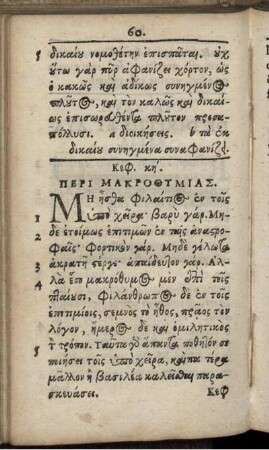 60.
δικαίου νομοθέτην ἐπισπᾶται. οὐχ
οὕτω γὰρ πῦρ ἀφανίζει χόρτον, ὡς
ὁ κακῶς καὶ ἀδίκως συνηγμένος
πλοῦτος, καὶ τὸν καλῶς καὶ δικαί-
ως ἐπισωρευθέντα πλοῦτον προσα-
πόλλυσι. a διοικήσεις. b τὰ ἐκ
δικαίου συνηγμένα συναφανίζει.
Κεφ. κή.
ΠΕΡΙ ΜΑΚΡΟΘΥΜΙΑΣ.
ΜΗ ἦσθα φιλαίτιος ἐν τοῖς
1 ὑπὸ χεῖρα· βαρὺ γάρ. Μη-
2 δὲ ἑτοίμως ἐπιτιμῶν ἐν ταῖς ἀναστρο-
φαῖς· φορτικὸν γάρ. Μηδὲ γέλωτα
3 ἀκρατῆ στέργε· ἀπαίδευτον γάρ. Ἀλ-
4 λὰ ἔσο μακρόθυμος μὲν ἐπὶ τοῖς
πταίουσι, φιλάνθρωπος δὲ ἐν τοῖς
ἐπιτιμίοις, σεμνὸς τὸ ἦθος, πρᾶος τὸν
λόγον, ἥμερος δὲ καὶ ὁμιλητικὸς
5 τὸν τρόπον. Ταῦτα γὰρ ἅπαντα ποθητόν σε
ποιήσει τοῖς ὑπὸ χεῖρα, καὶ πατέρα
μᾶλλον ἢ βασιλέα καλεῖσθαι παρα-
σκευάσει. Κεφ